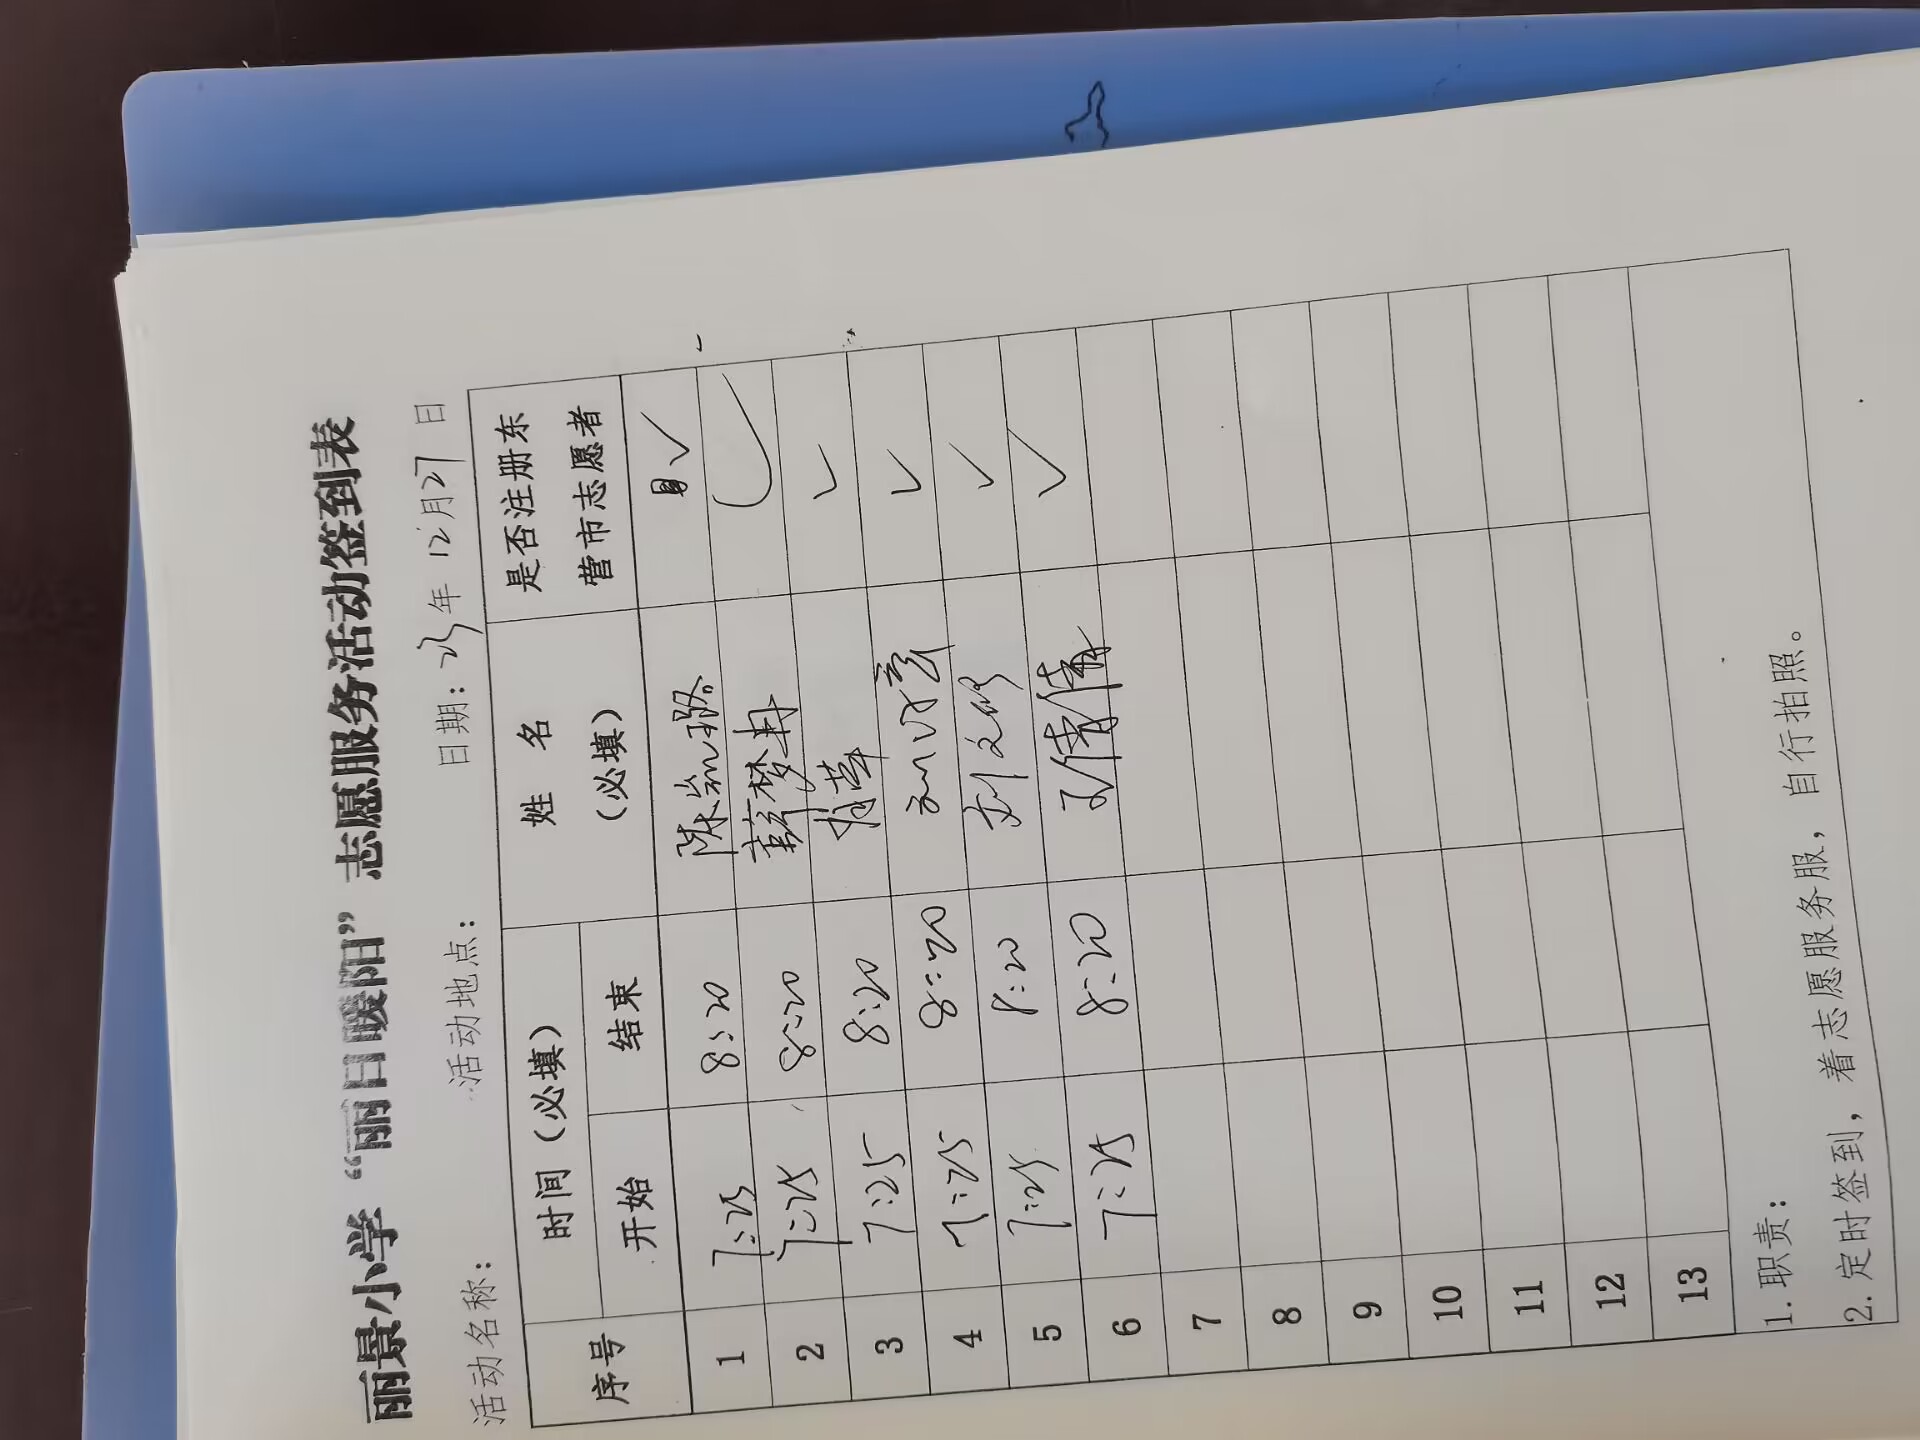 丽景小学“丽日暖阳”志愿服务活动签到表
活动名称： 活动地点： 日期：23年12月27日
序号 时间（必填） 姓名（必填） 是否注册东营市志愿者
开始 结束
1 7:25 8:20 陈 ✓
2 7:25 8:20 薛梦冉 ✓
3 7:25 8:20 ✓
4 7:25 8:20 ✓
5 7:25 8:20 刘文 ✓
6 7:25 8:20 倩倩 ✓
7
8
9
10
11
12
13
1.职责：
2.定时签到，着志愿服务服，自行拍照。